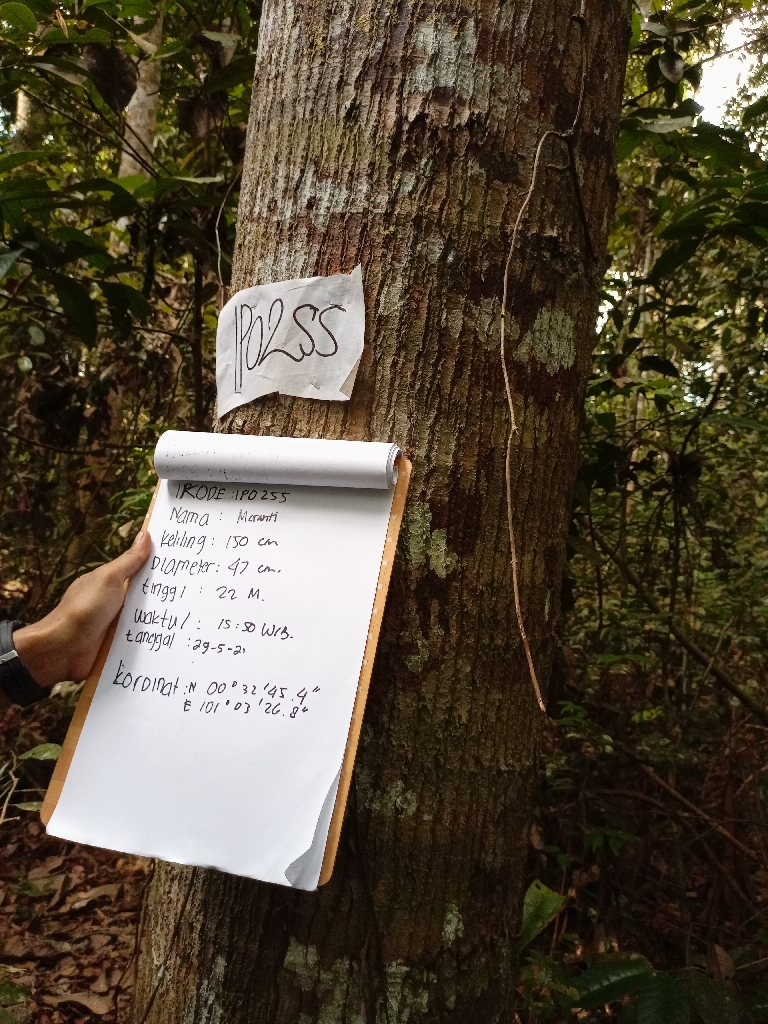 IPO2SS
KODE : IPO255
Nama : Meranti
Keliling : 150 cm
Diameter : 47 cm.
tinggi : 22 M.
Waktu : 15:50 WIB.
tanggal : 29-5-21
Kordinat : N 00° 32 '45.4"
E 101° 03 '26.8"